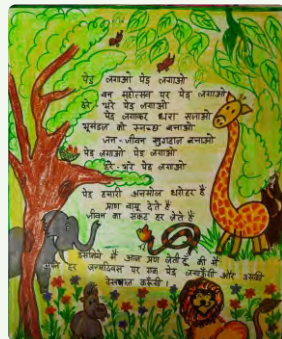 पेड़ लगाओ पेड़ लगाओ
वन महोत्सव पर पेड़ लगाओ
हरे-भरे पेड़ लगाओ
पेड़ लगाकर धरा सजाओ
भूमंडल को स्वच्छ बनाओ
जन-जीवन खुशहाल बनाओ
पेड़ लगाओ पेड़ लगाओ
हरे-भरे पेड़ लगाओ
पेड़ हमारी अनमोल धरोहर है
प्राण वायु देते है
जीवन का संकट हर लेते है
इसलिये मैं आज प्रण लेती हूँ की मैं
अपने हर जन्मदिवस पर एक पेड़ लगाऊँगी और उसकी
देखभाल करूँगी।